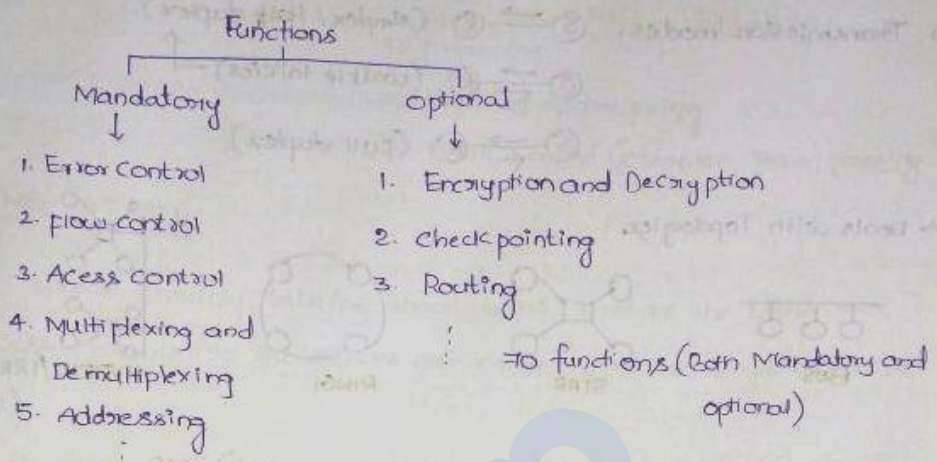 Functions
Mandatory
Optional
↓
↓
1. Error Control
2. flow control
3. Acess control
4. Multiplexing and
Demultiplexing
5. Addressing
1. Encryption and Decryption
2. Checkpointing
3. Routing
70 functions (Both Mandatory and
optional)